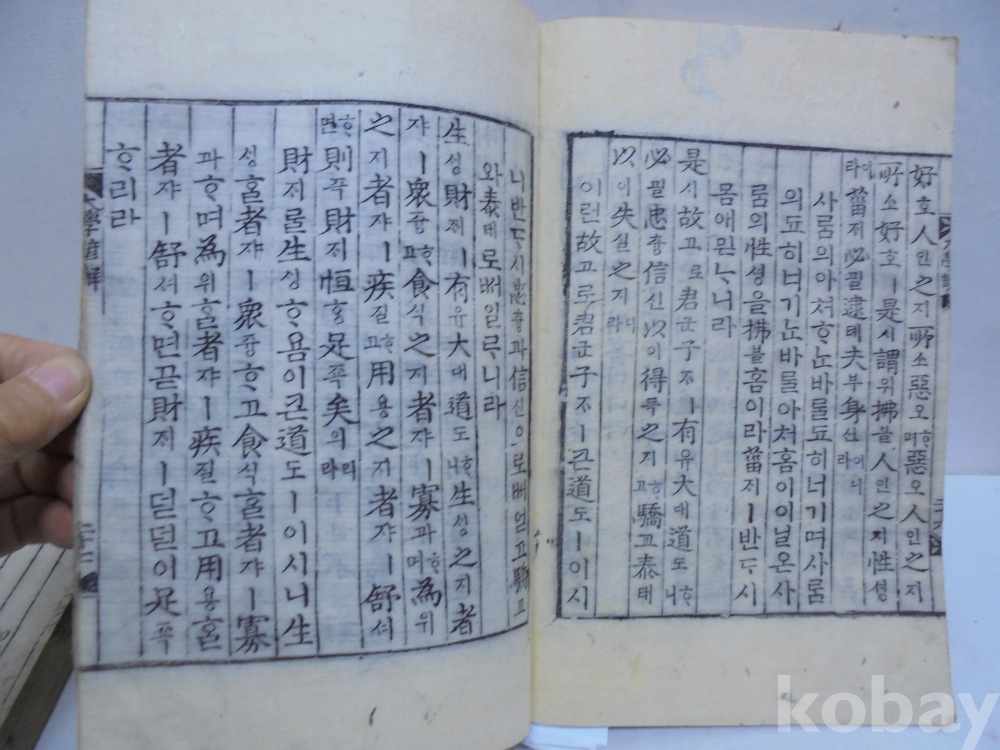 好호人인之지所소惡오ᄒᆞ며惡오人인之지
所소好호ㅣ是시謂위拂블人인之지性셩
이라菑ᄌᆡ必필逮톄夫부身신이니라
사ᄅᆞᆷ의아쳐ᄒᆞᄂᆞᆫ바ᄅᆞᆯ됴히너기며사ᄅᆞᆷ
의됴히너기ᄂᆞᆫ바ᄅᆞᆯ아쳐홈이이닐온사
ᄅᆞᆷ의性셩을拂블홈이라菑ᄌᆡㅣ반ᄃᆞ시
몸애믿ᄂᆞ니라
是시故고로君군子ᄌᆞㅣ有유大대道도ᄒᆞ니
必필忠츙信신以이得득之지ᄒᆞ고驕교泰태
以이失실之지니라
이런故고로君군子ᄌᆞㅣ큰道도ㅣ이시
니반ᄃᆞ시忠츙과信신으로ᄡᅥ얻고驕교
와泰태로ᄡᅥ일ᄅᆞᄂᆞ니라
生ᄉᆡᆼ財ᄌᆡㅣ有유大대道도ᄒᆞ니生ᄉᆡᆼ之지者
쟈ㅣ衆즁ᄒᆞ고食식之지者쟈ㅣ寡과ᄒᆞ며為위
之지者쟈ㅣ疾질ᄒᆞ고用용之지者쟈ㅣ舒셔
ᄒᆞ면則즉財ᄌᆡ恒ᄒᆞᆼ足죡矣의리라
財ᄌᆡᄅᆞᆯ生ᄉᆡᆼᄒᆞ욤이큰道도ㅣ이시니生
ᄉᆡᆼᄒᆞᆯ者쟈ㅣ衆즁ᄒᆞ고食식ᄒᆞᆯ者쟈ㅣ寡
과ᄒᆞ며為위ᄒᆞᆯ者쟈ㅣ疾질ᄒᆞ고用용ᄒᆞᆯ
者쟈ㅣ舒셔ᄒᆞ면곧財ᄌᆡㅣ덛덛이足죡
ᄒᆞ리라
大學諺解
kobay